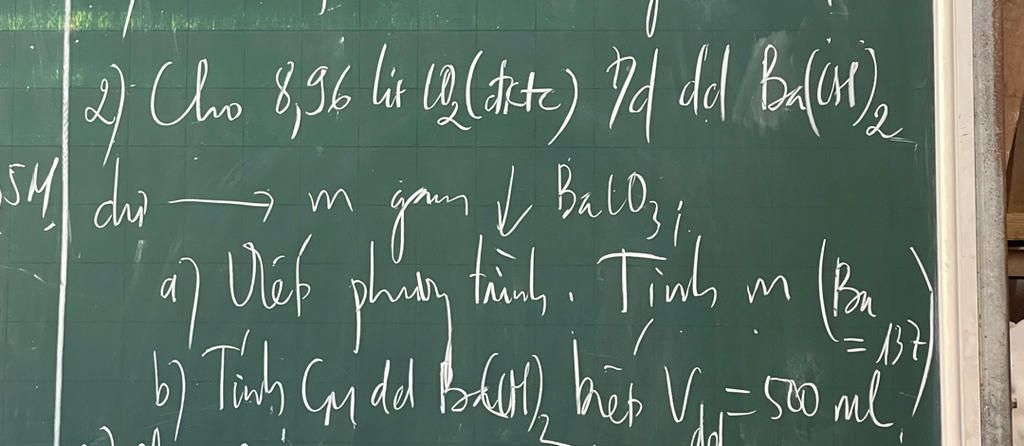 2) Cho 8,96 lít CO₂ (đktc) t/d dd Ba(OH)₂
5M
dư → m gam ↓ BaCO₃;
a) Viết phương trình. Tính m (Ba = 137)
b) Tính CM dd Ba(OH)₂ biết Vdd = 500 ml